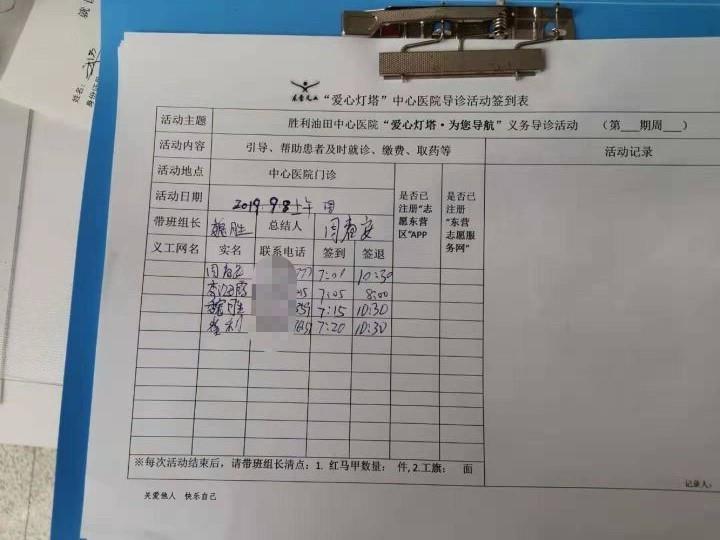 姓名:
东营义工
“爱心灯塔”中心医院导诊活动签到表
活动主题 胜利油田中心医院“爱心灯塔·为您导航”义务导诊活动 (第___期周___)
活动内容 引导、帮助患者及时就诊、缴费、取药等 活动记录
活动地点 中心医院门诊
活动日期 2019.9.8上午 周
是否已注册“志愿东营区”APP
是否已注册“东营志愿服务网”
带班组长 魏胜 总结人 闫春安
义工网名 实名 联系电话 签到 签退
7:01 10:30
7:05 8:00
魏胜 7:15 10:30
崔利 7:20 10:30
※每次活动结束后,请带班组长清点:1. 红马甲数量: 件,2.工旗: 面
记录人:
关爱他人 快乐自己